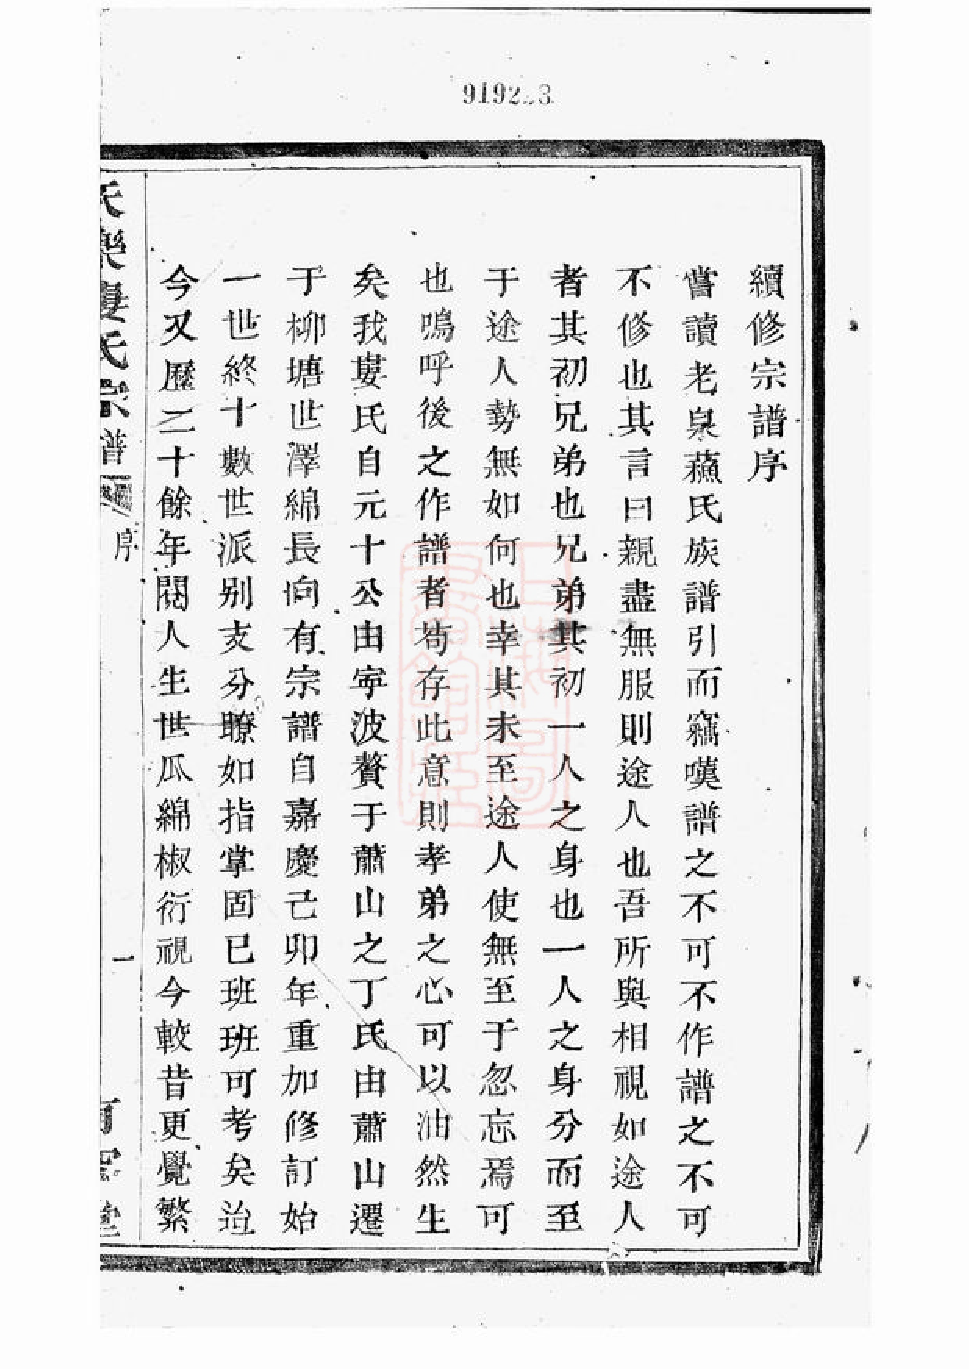 919223
續修宗譜序
嘗讀老泉蘓氏族譜引而竊嘆譜之不可不作譜之不可
不修也其言曰親盡無服則途人也吾所與相視如途人
者其初兄弟也兄弟其初一人之身也一人之身分而至
于途人勢無如何也幸其未至途人使無至于忽忘焉可
也嗚呼後之作譜者茍存此意則孝弟之心可以油然生
矣我婁氏自元十公由寕波贅于蕭山之丁氏由蕭山遷
于柳塘世澤綿長向有宗譜自嘉慶己卯年重加修訂始
一世終十數世派别支分瞭如指掌固已班班可考矣迨
今又歷二十餘年閱人生世瓜綿椒衍視今較昔更覺繁
氏樂婁氏宗譜
序
一